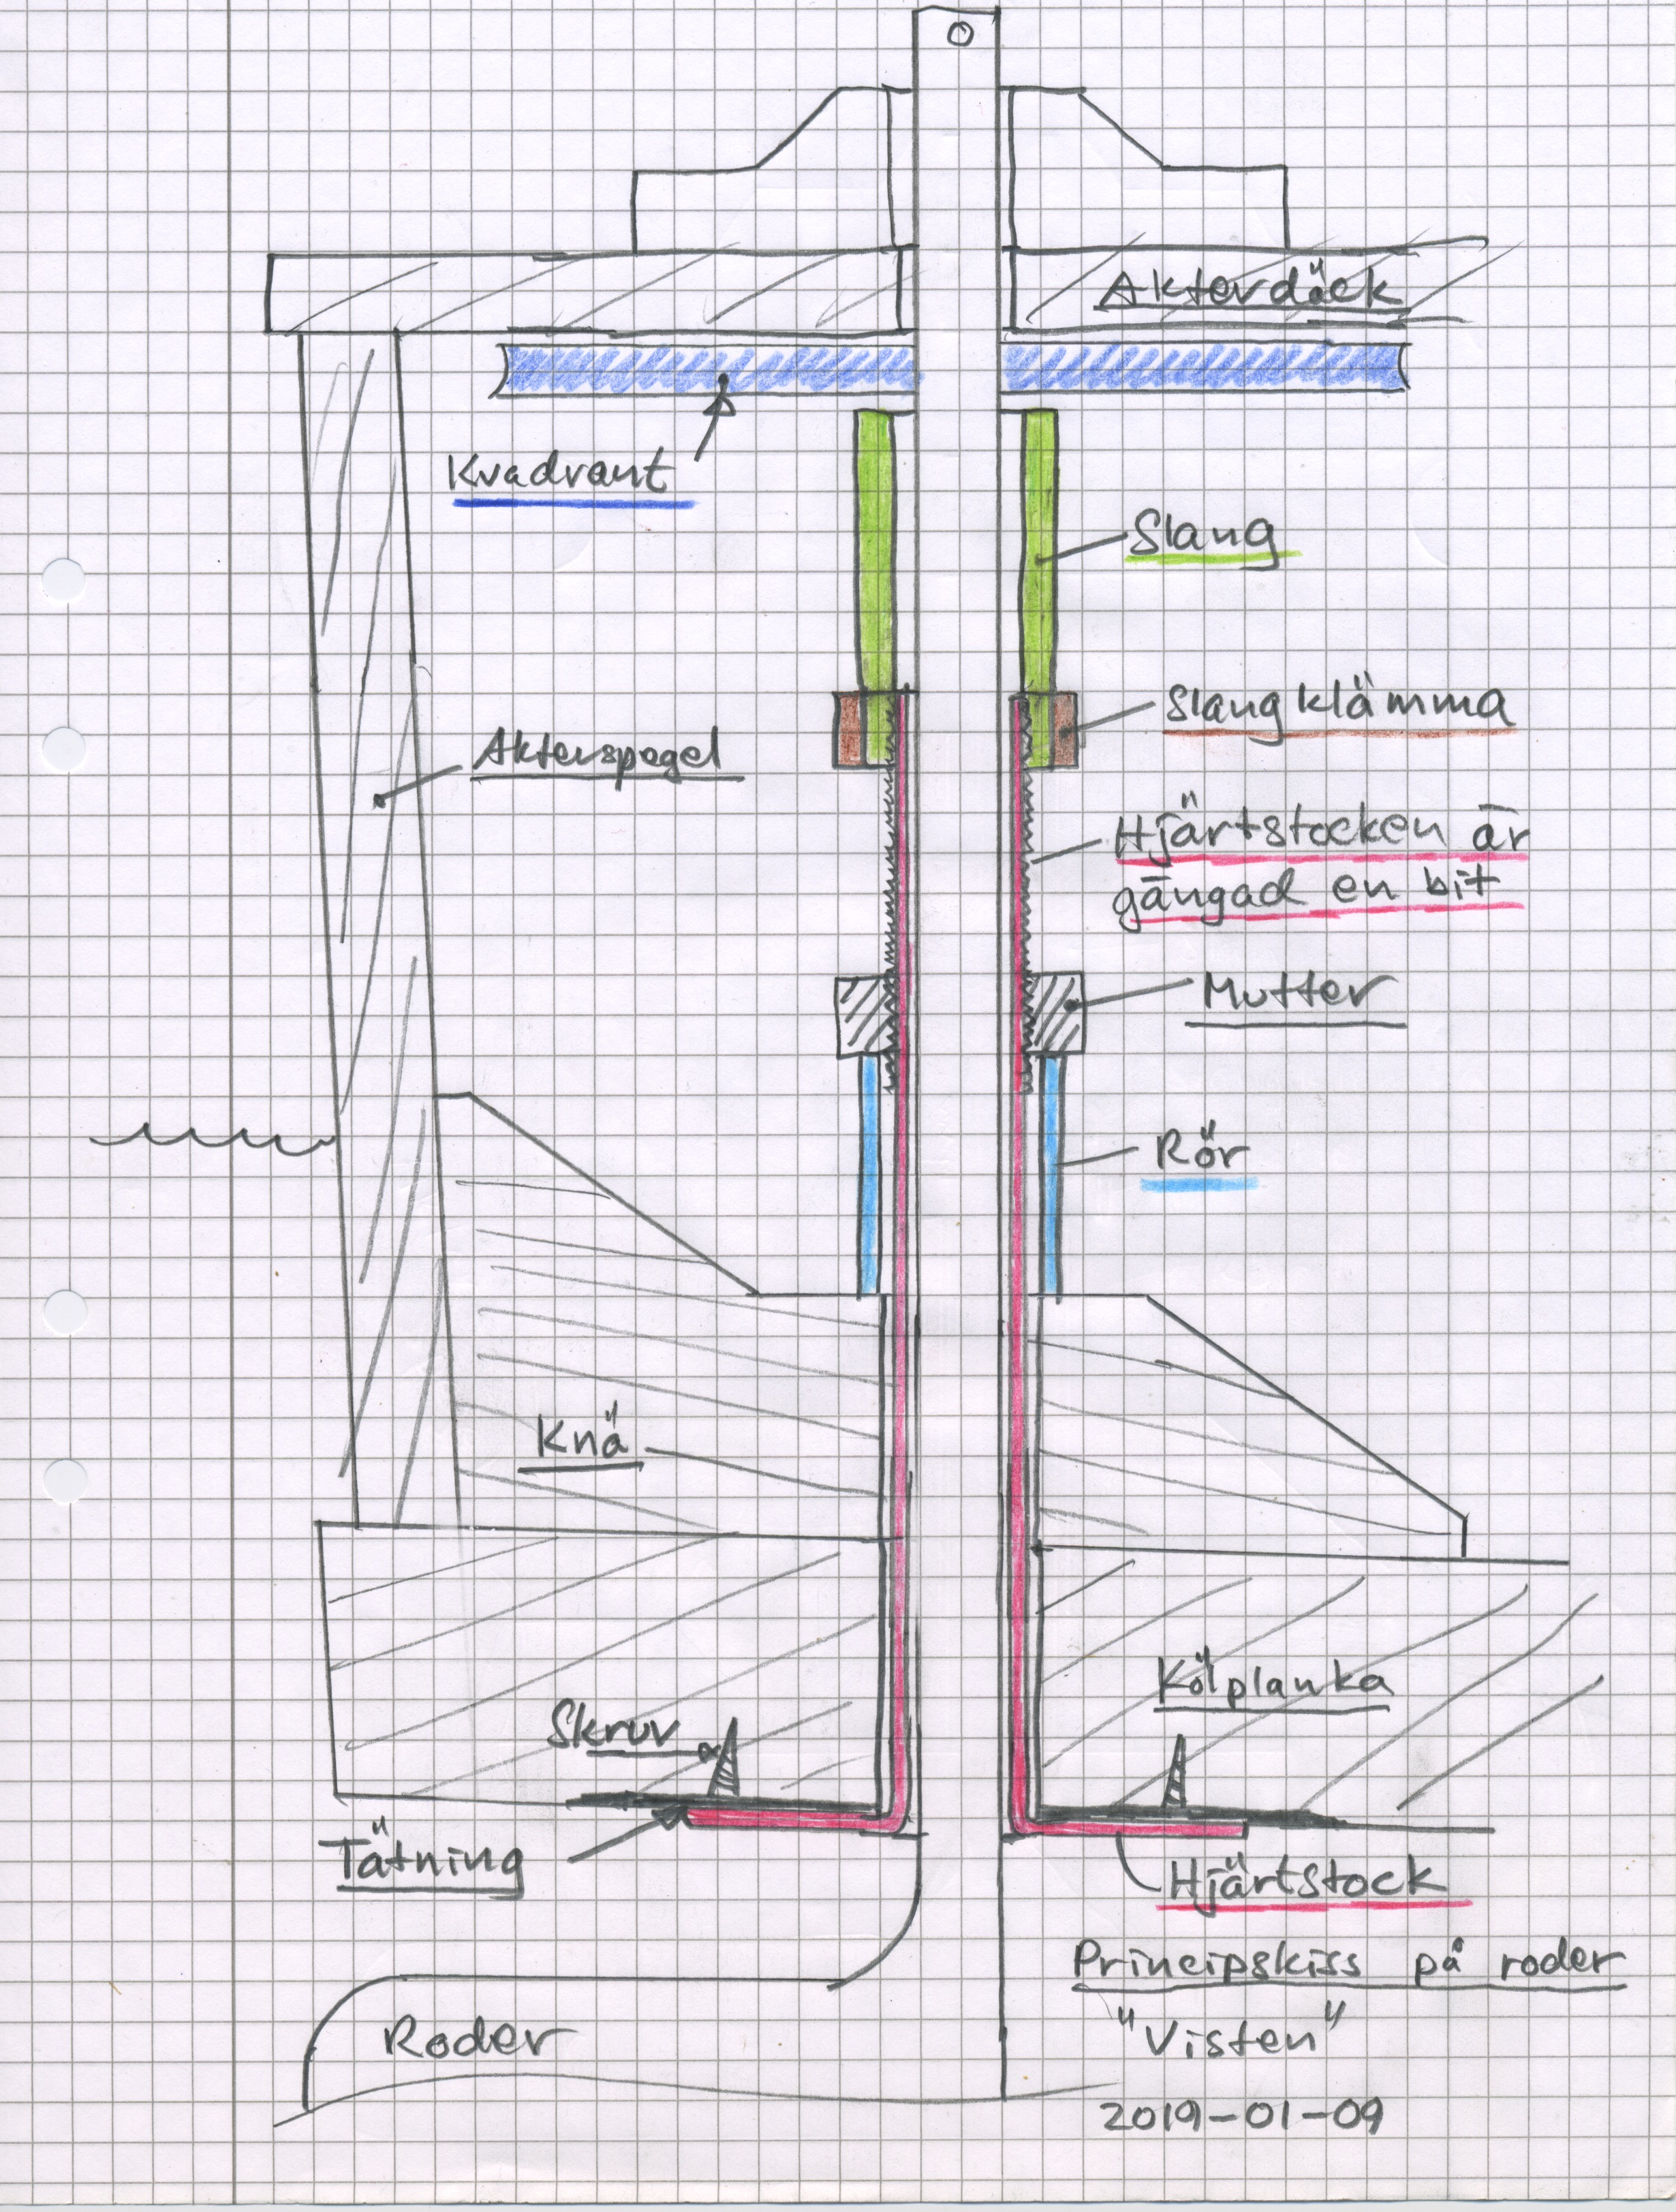 Akterdäck
Kvadrant
Slang
Slangklämma
Akterspegel
Hjärtstocken är
gängad en bit
Mutter
Rör
Knä
Kölplanka
Skruv
Tätning
Hjärtstock
Principskiss på roder
"Visten"
Roder
2019-01-09